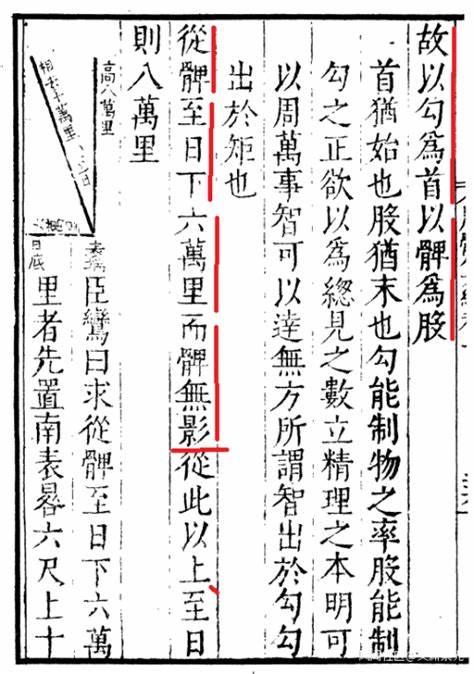 故以勾為首以髀為股
首猶始也股猶末也勾能制物之率股能制
勾之正欲以為總見之數立精理之本明可
以周萬事智可以達無方所謂智出於勾勾
出於矩也
從髀至日下六萬里而髀無影從此以上至日
則八萬里
高八萬里
臣鸞曰求從髀至日下六萬
里者先置南表晷六尺上十